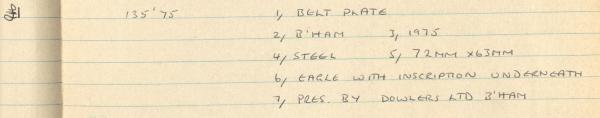 135'75 1, BELT PLATE
2, B'HAM 3, 1975
4, STEEL 5, 72MM X63MM
6, EAGLE WITH INSCRIPTION UNDERNEATH
7, PRES. BY DOWLERS LTD B'HAM